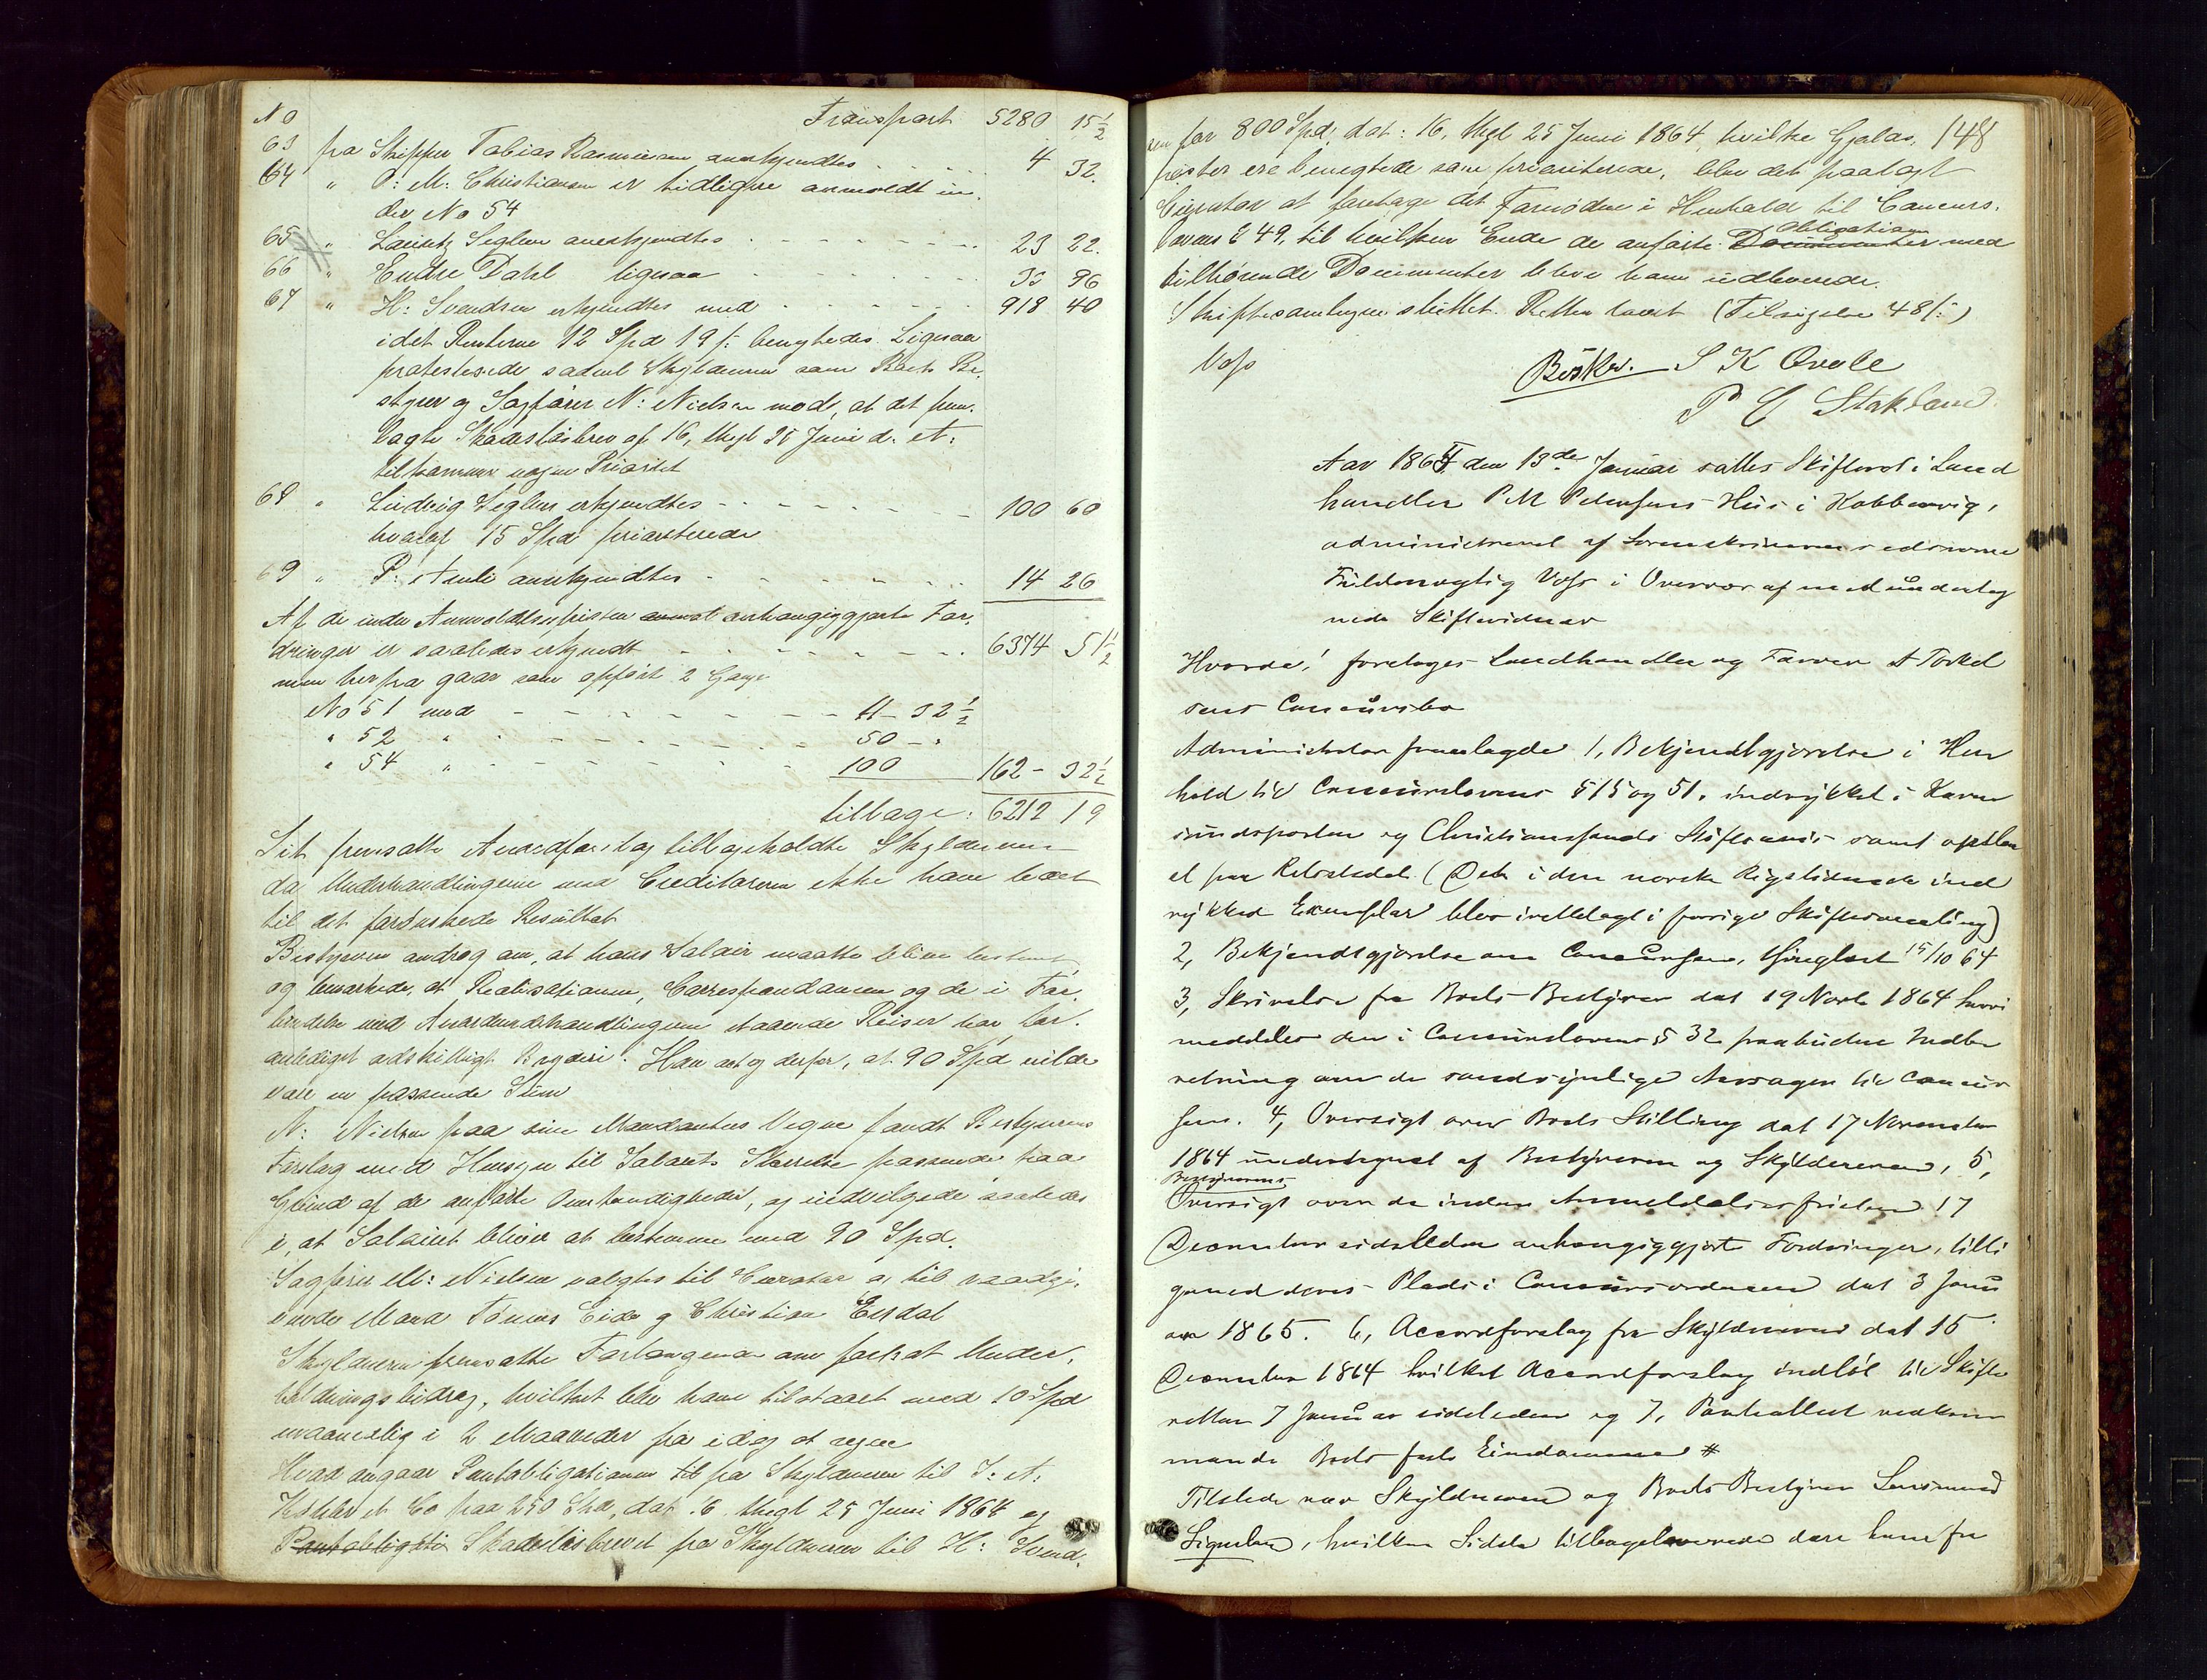 No Transport 5280 15½
63 fra Skipper Tobias Rasmussen anerkjendtes 4 32.
64 " P: M: Christiansen er tidligere anmeldt un-
der No 54
65 " Lauritz Seglem anerkjendtes 23 22.
66 " Endre Dahl ligesaa 33 96
67 " H: Svendsen erkjendtes med 918 40
idet Renterne 12 Spd 19 s: benegtedes. Ligesaa
protesterede saavel Skyldneren som Boets Be-
styrer og Sagfører N: Nielsen mod, at det frem-
lagte Skadesløsbrev af 16, thgl 25 Juni d: A:
tilkommer nogen Prioritet
68 " Ludvig Seglem erkjendtes 100 60
hvoraf 15 Spd prioriterede
69 " P: Auli anerkjendtes 14 26
Af de inden Anmeldelsesfristen anhængiggjorte For-
dringer er saaledes erkjendt 6374 51½
men herfra gaar som opført 2 Gange
No 51 med 11 - 32½
" 52 " 50 - "
" 54 " 100 162 - 32½
tilbage: 6212 19
Sit fremsatte Accordforslag tilbageholdte Skyldneren
da Underhandlingerne med Creditorerne ikke have ledet
til det forønskede Resultat
Bestyreren androg om, at hans Salair maatte blive bestemt
og bemærkede, at Realisationen, Correspondancen og de i For-
bindelse med Accordunderhandlingerne staaende Reiser har for-
anlediget adskilligt Bryderi. Han antog derfor, at 90 Spd vilde
være en passende Sum
N: Nielsen paa sine Mandanters Vegne fandt Bestyrerens
Forslag med Hensyn til Salairets Størrelse passende paa
Grund af de anførte Omstændigheder, og indvilgede saaledes
i, at Salairet bliver at bestemme med 90 Spd.
Sagfører M: Nielsen valgtes til Curator og til raadgi-
vende Mænd Tønnes Eide og Christian Eesdal
Skyldneren fremsatte Forlangende om fortsat Under-
holdningsbidrag, hvilket blev ham tilstaaet med 10 Spd
maanedlig i 2 Maaneder fra idag at regne
Hvad angaar Pantobligationen fra Skyldneren til J: A:
et Co paa 250 Spd, dat. 16 thgl 25 Juni 1864 og
Pantobligatio Skadesløsbrevet fra Skyldneren til H: Svend-
sen for 800 Spd; dat: 16, thgl 25 Juni 1864, hvilke Gjelds- 148
poster ere benegtede som prioriterede, blev det paalagt
Curator at foretage det Fornødne i Henhold til Concurs-
lovens § 49, til hvilken Ende de anførte Documenter Obligationer med
tilhørende Documenter bleve ham udleverede.
Skiftesamlingen sluttet. Retten hævet (Tilsigelse 48 s:)
Voss S K Qvale
P C Stakland
Aar 1865 den 13de Januar sattes Skifteret i Land
handler P M Petersens Hus i Kobbervig,
administreret af Sorenskriverens edsvorne
Fuldmægtig Voss i Overvær af medunderteg
nede Skiftevidner
Hvorda! foretoges Landhandler og Farver A Torkel
sens Concursbo
Administrator fremlagde 1, Bekjendtgjørelse i Hen
hold til Concurslovens § 15 og 51, indrykket i Karm
sundsposten og Christianssands Stiftsavis samt opslaa
et paa Retsstedet. (Det i den norske Rigstidende ind
rykked Exemplar blev irettelagt i forrige Skiftesamling)
2, Bekjendtgjørelse om Concursen, thinglæst 15/10 64
3, Skrivelse fra Boets Bestyrer dat 19 Novb 1864 hvori
meddeles den i Concurslovens § 32 paabudne Indbe
retning om de sandsynlige Aarsager til Concur
sen. 4, Oversigt over Boets Stilling dat 17 November
1864 undertegnet af Bestyreren og Skylderen, 5,
Bestyrerens
Oversigt over de inden Anmeldelsesfristen 17
December sidstleden anhængiggjorte Fordringer, tilli
gemed deres Plads i Concursordenen dat 3 Janu
ar 1865. 6, Accordforslag fra Skyldneren dat 15
December 1864 hvilket Accordforslag indløb til Skifte
retten 7 Januar sidstleden og 7, Pantattest vedkom
mende Boets faste Eiendomme #
Tilstede var Skyldneren og Boets Bestyrer Lensmand
Sigvelsen, hvilken Sidste tilbageleverede dere ham fra